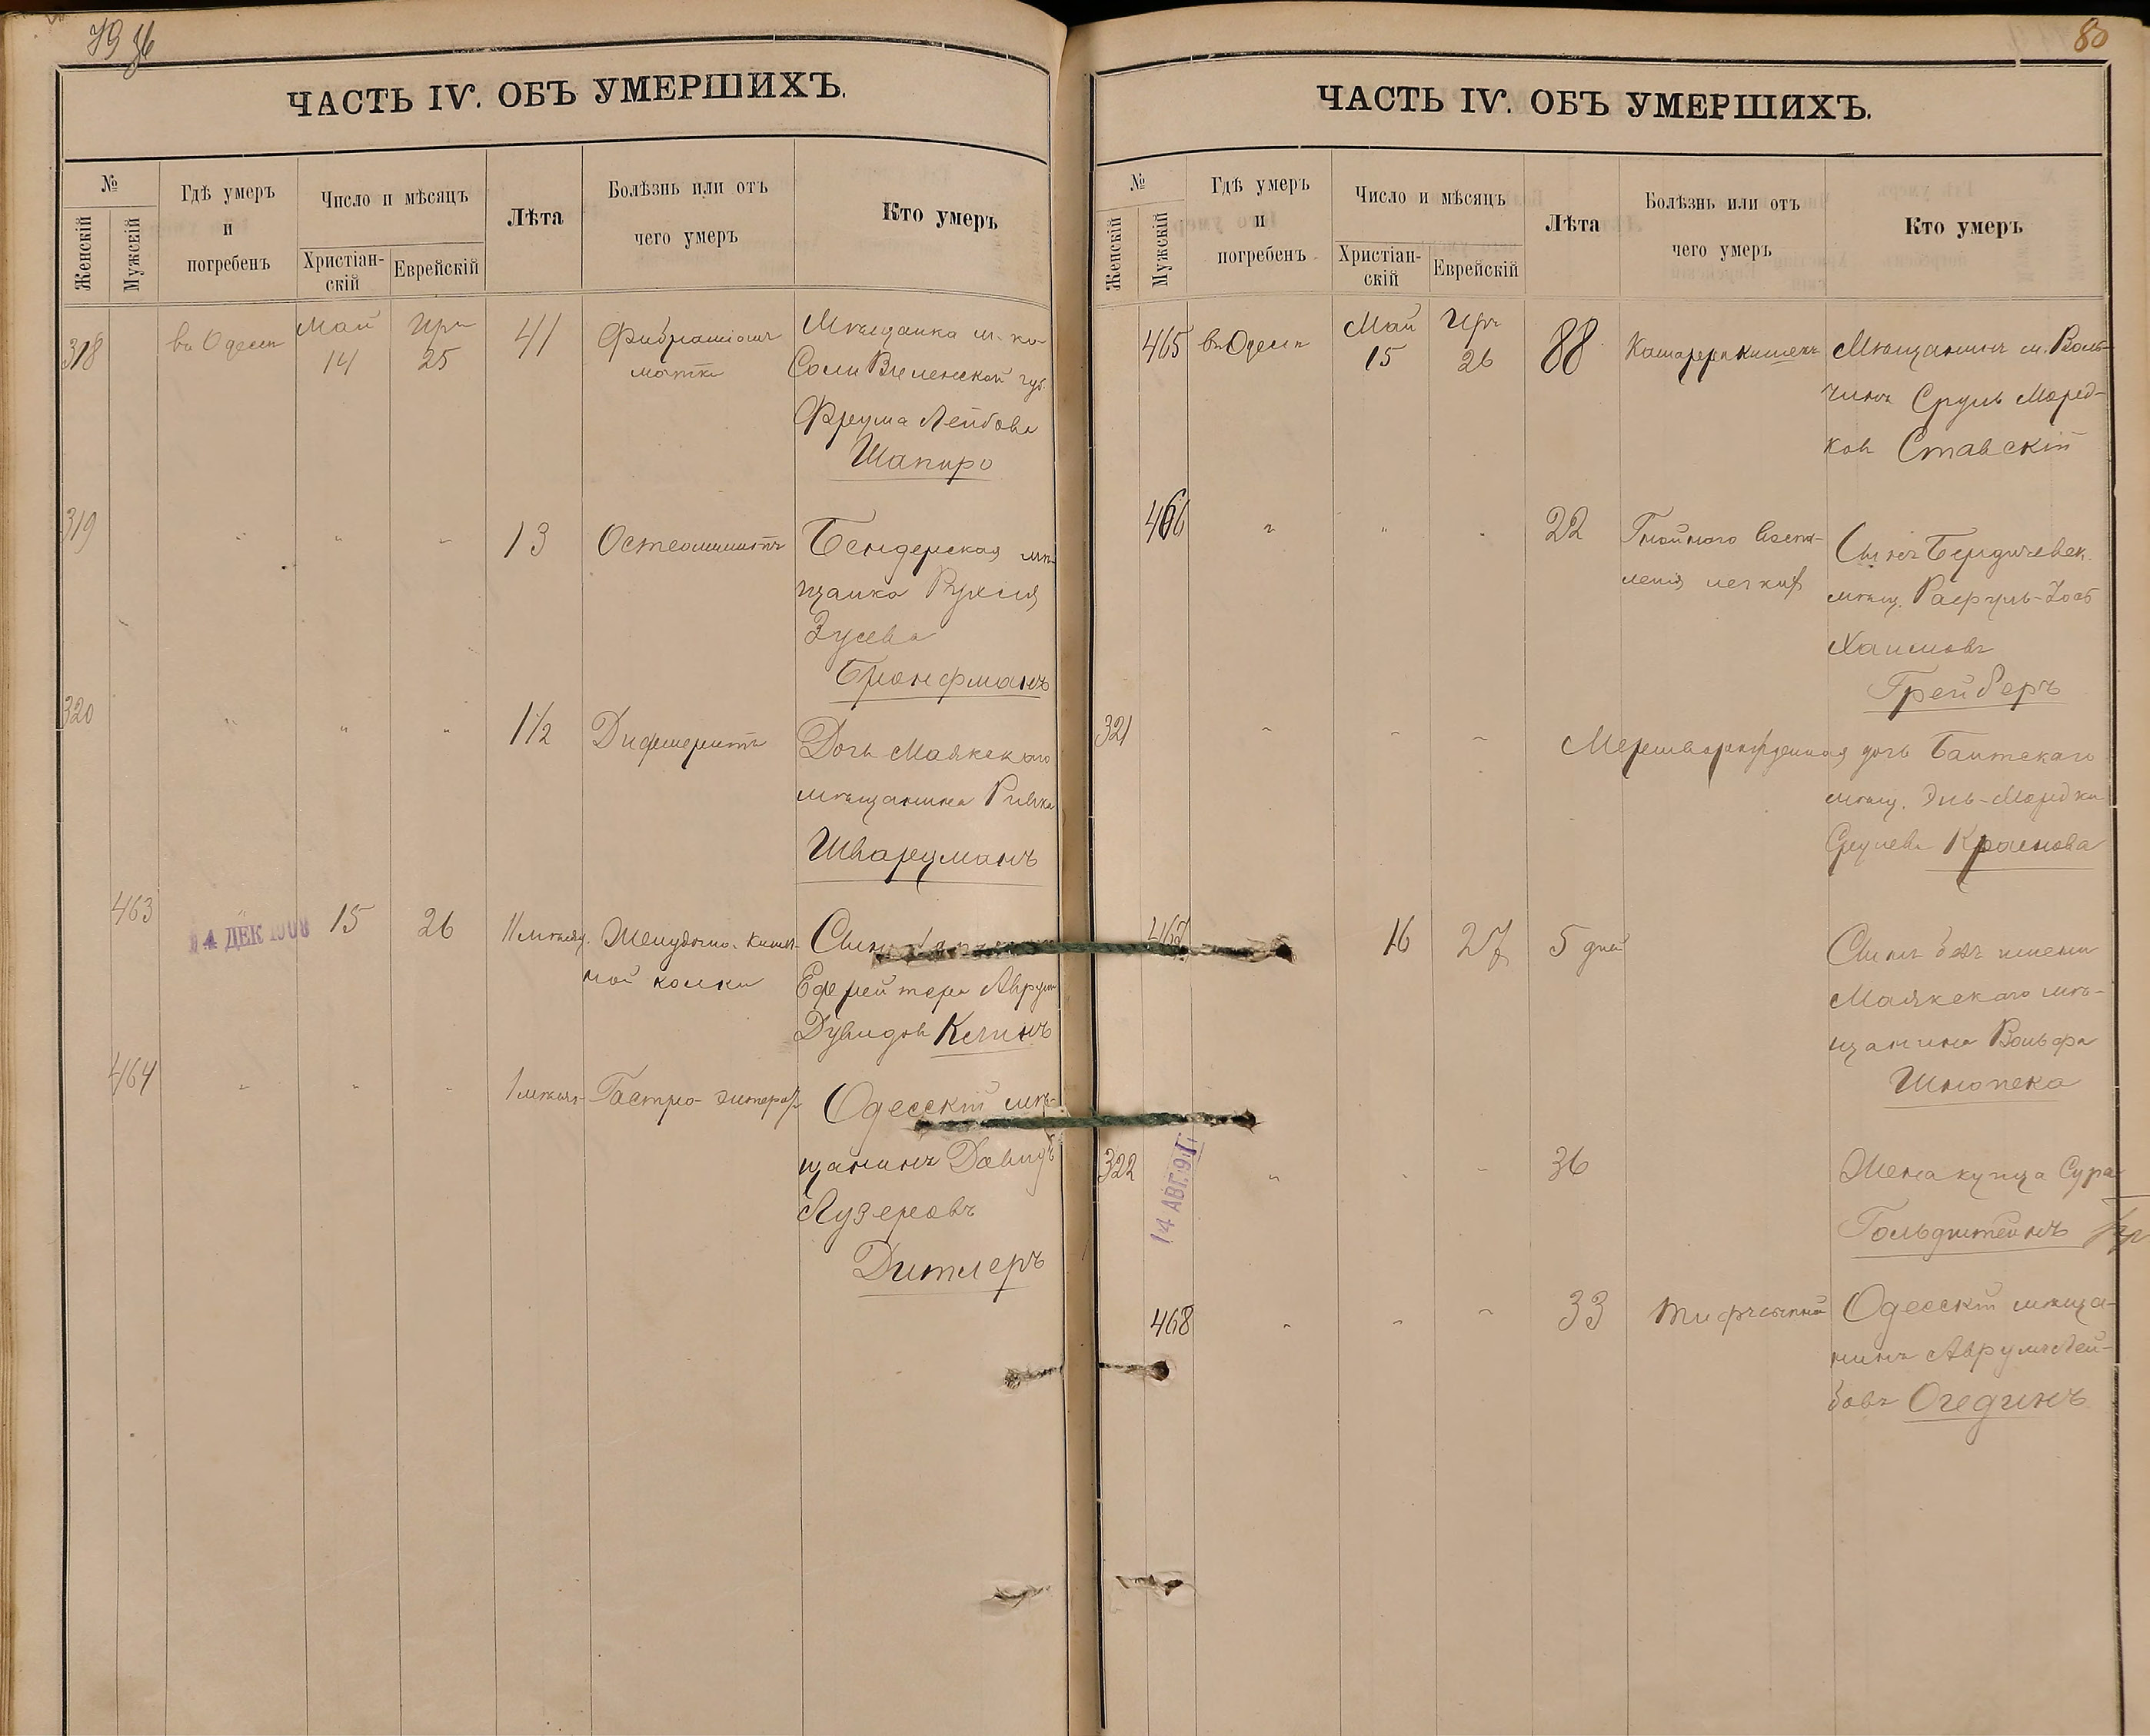 79 об
ЧАСТЬ IV. ОБЪ УМЕРШИХЪ.
№
Женскій
Мужскій
Гдѣ умеръ
и
погребенъ
Число и мѣсяцъ
Христіан-
скій
Еврейскій
Лѣта
Болѣзнь или отъ
чего умеръ
Кто умеръ
318
въ Одессѣ
Май
14
Иръ
25
41
матки
Мѣщанка м.
Соли Виленской губ.
Фрума Лейбова
Шапиро
319
"
"
"
13
Остеоміитъ
Бендерская мѣ-
щанка Рухля
Зусева
Бронфманъ
320
"
"
"
1½
Дифтеритъ
Дочь Маякскаго
мѣщанина Ривка
Шварцманъ
463
"
14 ДЕК 1908
15
26
11 мѣсяц.
Желудочно-кишеч-
ной колики
Сынъ
Ефрейтора Аврум
Дувидов Келинъ
464
"
"
"
1 мѣсяц
Гастро-энтерит
Одесскій мѣ-
щанинъ Давидъ
Лузеровъ
Дитлеръ
80
ЧАСТЬ IV. ОБЪ УМЕРШИХЪ.
№
Женскій
Мужскій
Гдѣ умеръ
и
погребенъ
Число и мѣсяцъ
Христіан-
скій
Еврейскій
Лѣта
Болѣзнь или отъ
чего умеръ
Кто умеръ
465
въ Одессѣ
Май
15
Иръ
26
88
Катарръ кишекъ
Мѣщанинъ м. Воль-
чинъ Сруль Морд-
ков Ставскій
466
"
"
"
22
Гнойного воспа-
ленія легких
Сынъ Бердичевск.
мѣщ.
Хаимовъ
Грейберъ
321
"
"
"
Мертворожденная дочь Балтскаго
мѣщ. Эль-Мордки
Срулева Краснова
467
16
27
5 дней
Сынъ безъ имени
Маякскаго мѣ-
щанина Вольфа
Шнопека
322
14 АВГ. 91
"
"
"
36
Жена купца Сура
Гольдштейнъ
468
"
"
"
33
Тифъ сыпной
Одесскій мѣща-
нинъ Аврумъ Лей-
бовъ Огединъ